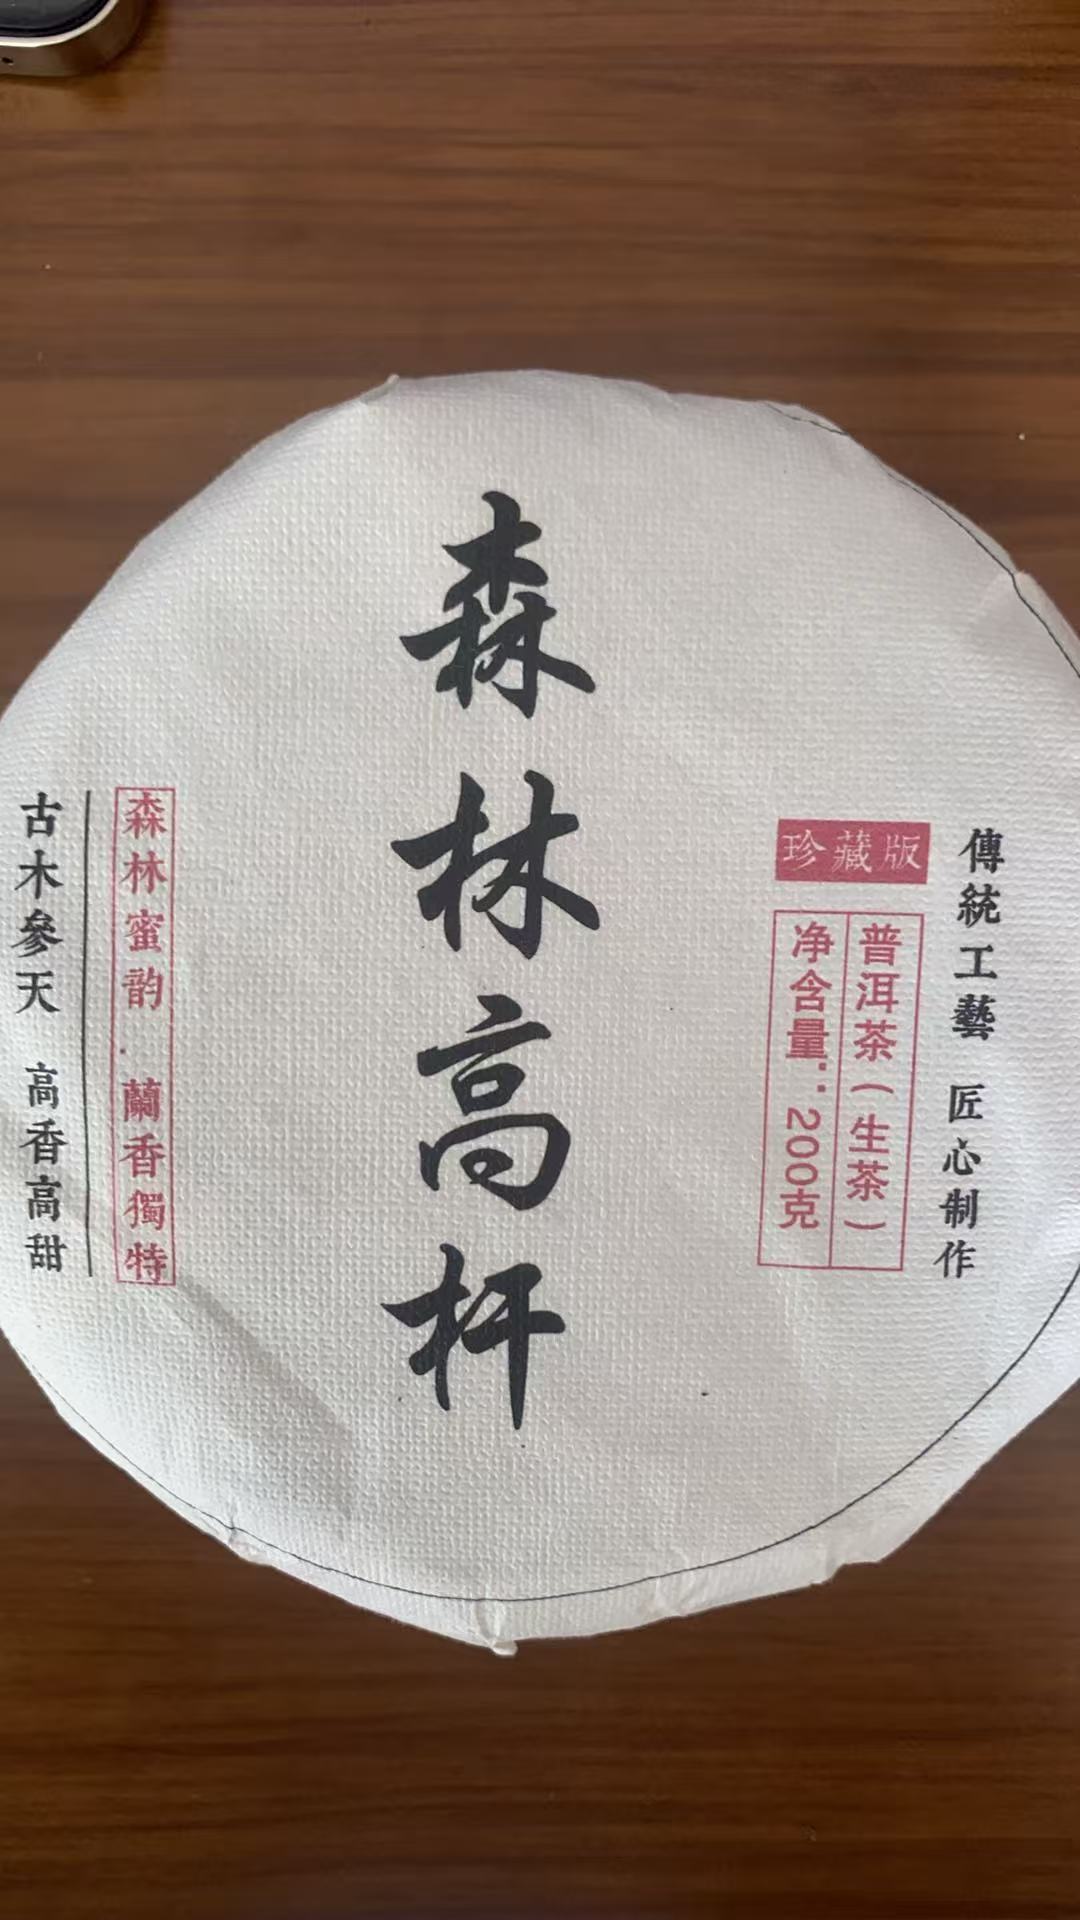 傳統工藝 匠心制作
珍藏版
普洱茶(生茶)
净含量:200克
森林高杆
森林蜜韵·蘭香獨特
古木參天 高香高甜